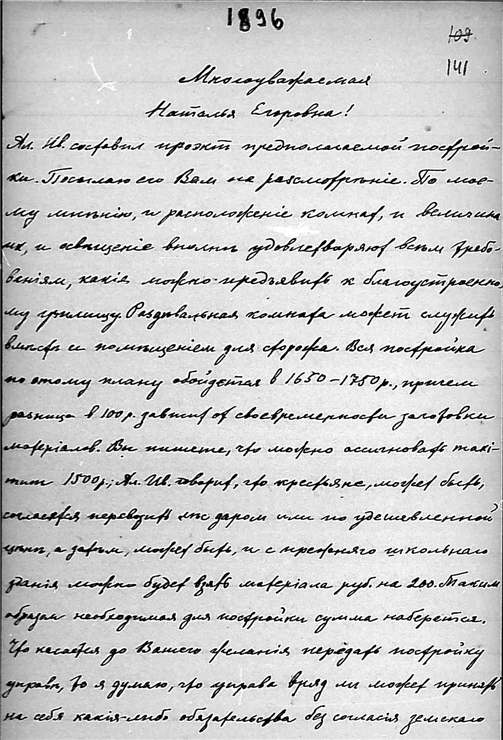 1896
109
141
Многоуважаемая
Наталья Егоровна!
Ал. Ив. составил проэкт предполагаемой построй-
ки. Посылаю его Вам на разсмотрѣніе. По мое-
му мнѣнію, и расположеніе комнат, и величина
их, и освѣщеніе вполнѣ удовлетворяют всѣм требо-
ваніям, какія можно предъявить к благоустроенно-
му училищу. Раздѣвальная комната может служить
вмѣстѣ и помѣщеніем для сторожа. Вся постройка
по этому плану обойдется в 1650-1750 р., причем
разница в 100 р. зависит от своевременности заготовки
матеріалов. Вы пишете, что можно ассигновать maxi-
mum 1500 р.; Ал. Ив. говорит, что крестьяне, может быть,
согласятся перевозить лѣс даром или по удешевленной
цѣнѣ, а затѣм, может быть, и с прежняго школьнаго
зданія можно будет взять матеріала руб. на 200. Таким
образом необходимая для постройки сумма наберется.
Что касается до Вашего желанія передать постройку
управѣ, то я думаю, что управа вряд ли может принять
на себя какія-либо обязательства без согласія земскаго